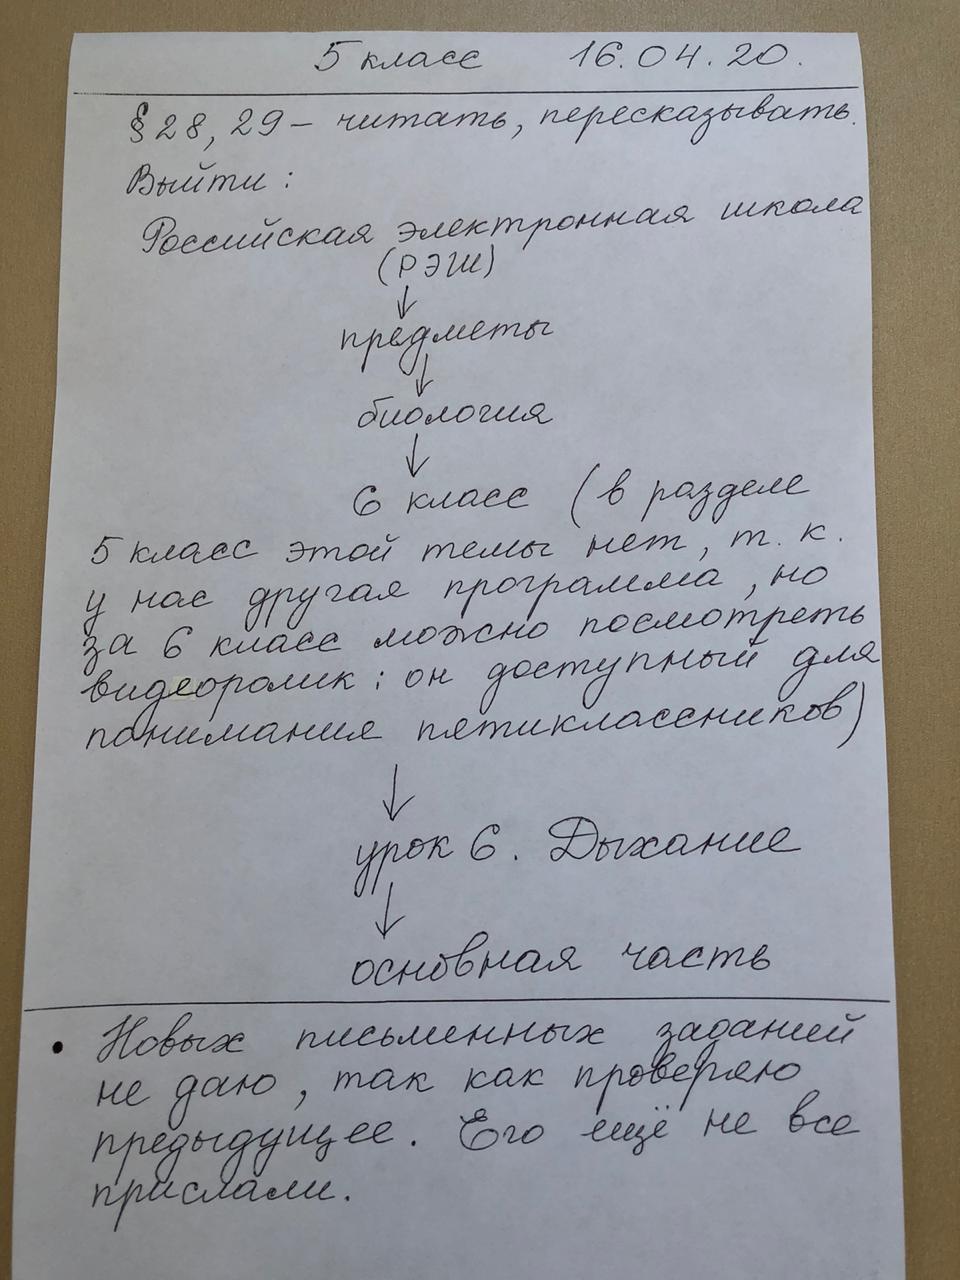 5 класс 16.04.20.
§ 28, 29 – читать, пересказывать.
Выйти:
Российская электронная школа
(РЭШ)
↓
предметы
↓
биология
↓
6 класс (в разделе
5 класс этой темы нет, т. к.
у нас другая программа, но
за 6 класс можно посмотреть
видеоролик: он доступный для
понимания пятиклассников)
↓
урок 6. Дыхание
↓
основная часть
• Новых письменных заданий
не даю, так как проверяю
предыдущее. Его ещё не все
прислали.